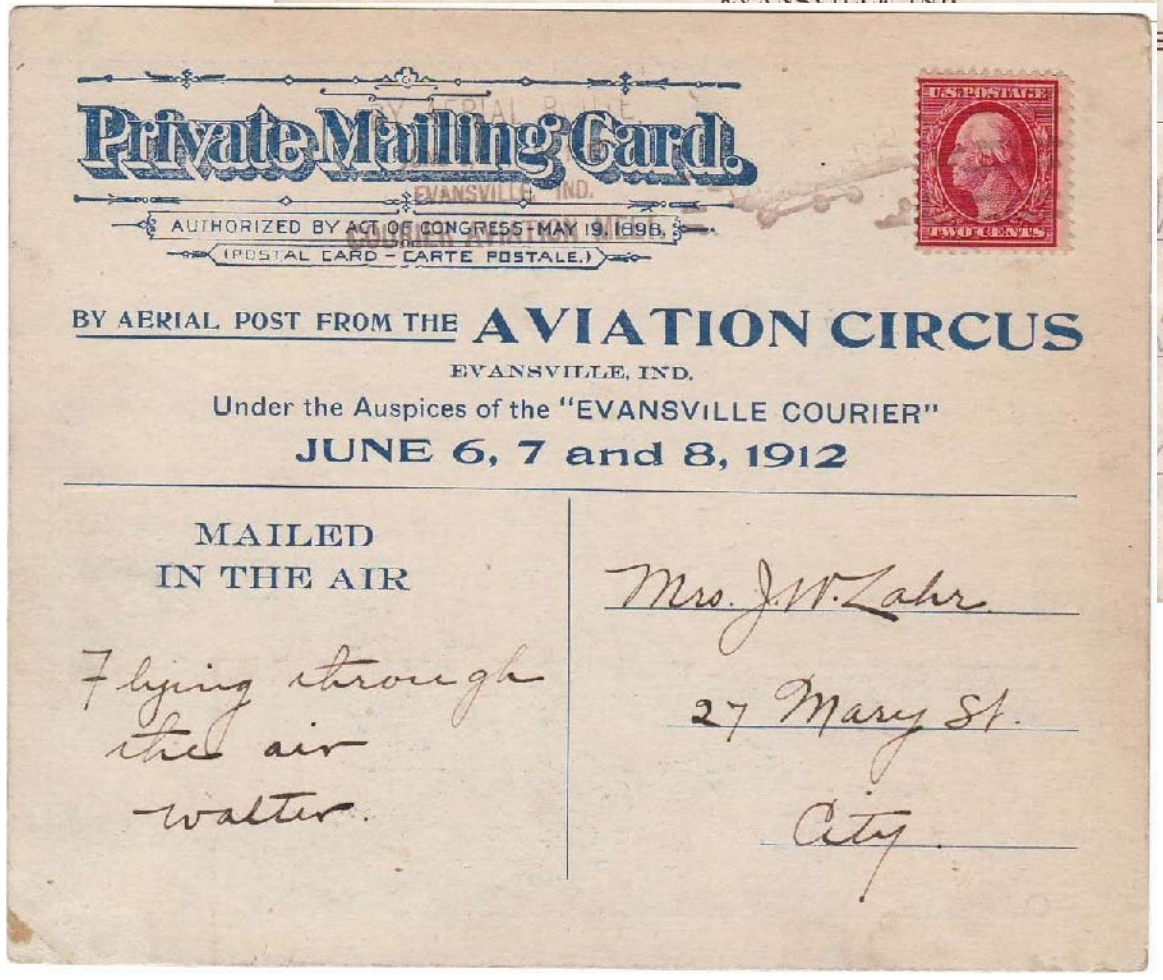 EVANSVILLE IND
Private Mailing Card.
BY AERIAL ROUTE.
EVANSVILLE, IND.
COURIER AVIATION MEET
AUTHORIZED BY ACT OF CONGRESS-MAY 19, 1898.
(POSTAL CARD - CARTE POSTALE.)
U.S. POSTAGE
TWO CENTS
BY AERIAL POST FROM THE AVIATION CIRCUS
EVANSVILLE, IND.
Under the Auspices of the "EVANSVILLE COURIER"
JUNE 6, 7 and 8, 1912
MAILED
IN THE AIR
Flying through
the air
Walter.
Mrs. J.W. Lahr
27 Mary St.
City.